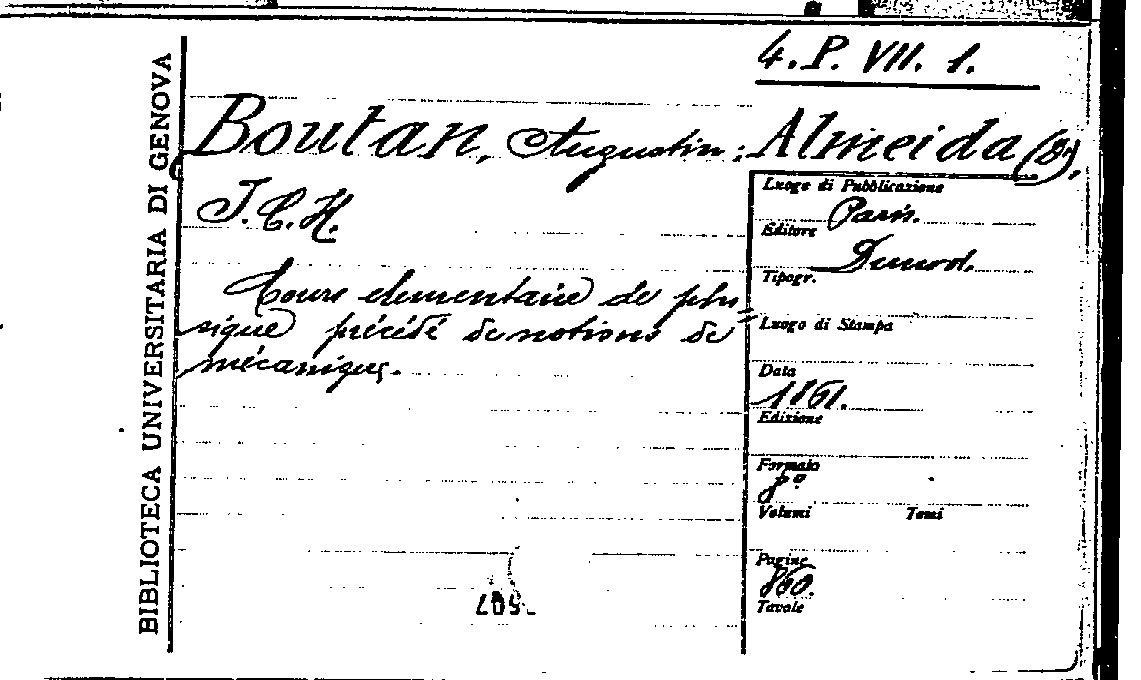 4. P. VII. 1.
BIBLIOTECA UNIVERSITARIA DI GENOVA
Boutan, Augustin; Almeida (D'),
J. C. H.
Cours elementaire de phy=
sique précédé de notions de
mécanique.
Luogo di Pubblicazione
Paris.
Editore
Dunod.
Tipogr.
Luogo di Stampa
Data
1861.
Edizione
Formato
8º
Volumi Tomi
Pagine
860.
Tavole